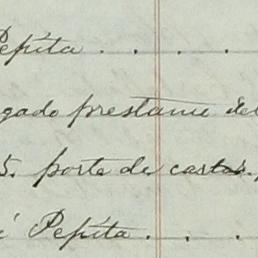 Pepita . . . .
gado prestamo del
5. porte de cartas.
í Pepita . . .